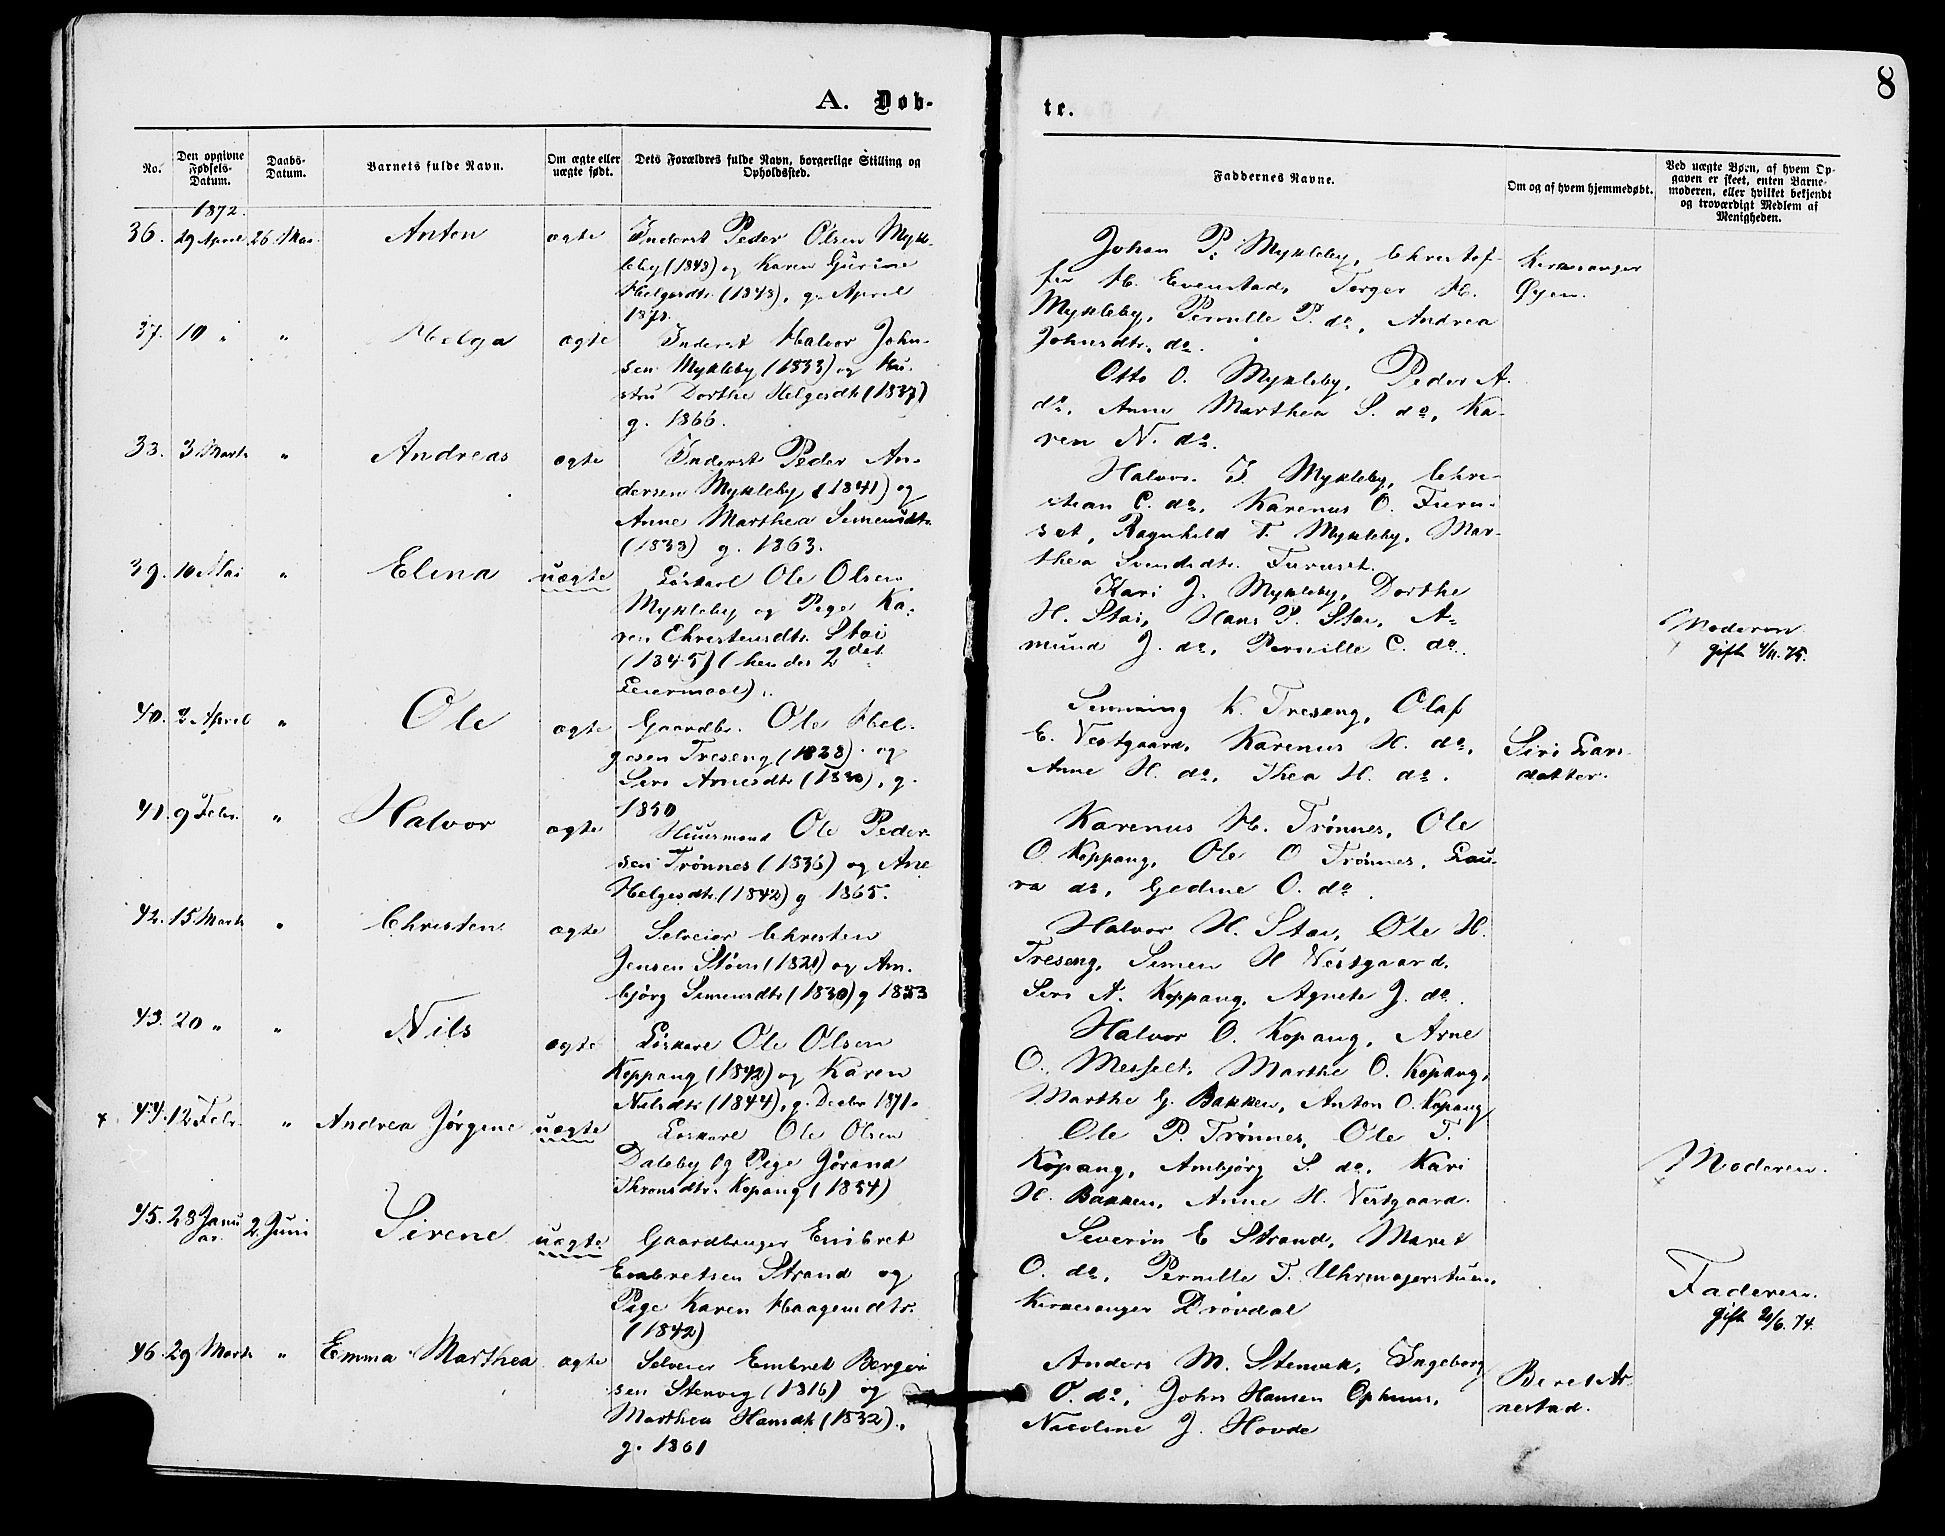 8
A. Døb-
te.
No.
Den opgivne Fødsels-Datum.
Daabs-Datum.
Barnets fulde Navn.
Om ægte eller uægte født.
Dets Forældres fulde Navn, borgerlige Stilling og Opholdssted.
Faddernes Navne.
Om og af hvem hjemmedøbt.
Ved uægte Børn, af hvem Op-
gaven er skeet, enten Barne-
moderen, eller hvilket bekjendt
og troværdigt Medlem af
Menigheden.
1872.
36. 29 April 26 Mai Anton ægte Inderst Peder Olsen Mykl-
eby (1848) og Karen Gurine
Helgesdtr. (1848), g. April
1872.
Johan P. Mykleby, Christof-
fer H. Evenstad, Torger H.
Mykleby, Pernille P. do, Andrea
Johnsdtr. do.
Kirkesanger
Øyen.
37. 10 " " Helga ægte Inderst Halvor John-
sen Mykleby (1833) og Hu-
stru Dorthe Helgesdtr (1837)
g. 1866.
Otto O. Mykleby, Peder A.
do, Anne Marthea S. do, Ka-
ren N. do.
38. 3 Marts " Andreas ægte Inderst Peder An-
dersen Mykleby (1841) og
Anne Marthea Simensdtr.
(1838) g. 1863.
Halvor J. Mykleby, Chri-
stian C. do, Karenus O. Furu-
set, Ragnhild T. Mykleby, Mar-
thea Svendsdtr. Furuset.
39. 10 Mai " Elina uægte Løskarl Ole Olsen
Mykleby og Pige Ka-
ren Christensdtr. Stai
(1845) (hendes 2det
Leiermaal).
Kari J. Mykleby, Dorthe
H. Stai, Hans P. Stai, A-
mund J. do, Pernille C. do.
Moderen
gift 4/11. 75.
40. 2 April " Ole ægte Gaardbr. Ole Hel-
gesen Treseng (1828) og
Siri Arnesdtr (1830), g.
1850
Simming K. Treseng, Olaf
E. Vestgaard, Karenus H. do,
Anne H. do, Thea H. do.
Siri Lars-
datter.
41. 9 Febr. " Halvor ægte Huusmand Ole Peder-
sen Trønnes (1836) og Ane
Helgesdtr. (1842) g 1865.
Karenus H. Trønnes, Ole
O. Koppang, Ole O Trønnes, Lau-
ra do, Gedine O. do.
42. 15 Marts " Christen ægte Selveier Christen
Jensen Støen (1821) og Am-
bjørg Simensdtr (1830) g 1853
Halvor H. Stai, Ole H.
Treseng, Simen H Vestgaard,
Siri A. Koppang, Agnete J. do.
43. 20 " " Nils ægte Løskarl Ole Olsen
Koppang (1842) og Karen
Nilsdtr (1844), g. Decbr 1871.
Halvor O. Kopang, Arne
O. Messelt, Marthe O. Kopang,
Marthe G. Bakken, Anton O. Kopang
44. 12 Febr. " Andrea Jørgine uægte Løskarl Ole Olsen
Daleby og Pige Jørand
Thronsdtr. Kopang (1854)
Ole P. Trønnes, Ole T.
Kopang, Ambjørg S. do, Kari
H. Bakken, Anne H. Vestgaard.
Moderen.
45. 28 Janu
ar. 2 Juni Sirene uægte Gaardbruger Embret
Embretsen Strand og
Pige Karen Haagensdtr.
(1842)
Severin E Strand, Maret
O. do, Pernille T. Uhrmagerstuen,
Kirkesanger Drøvdal
Faderen.
gift 21/6. 74.
46. 29 Marts " Emma Marthea ægte Selveier Embret Berger-
sen Stenvig (1816) og
Marthea Hansdtr (1832),
g. 1861
Anders M. Stenvik, Ingeborg
O. do, John Hansen Ophuus,
Nicoline J. Hovde
Beret Ar-
nestad.